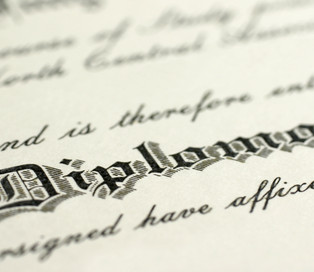 ourse of Study
North Central
nd is therefore en
Diploma
rsigned have affix